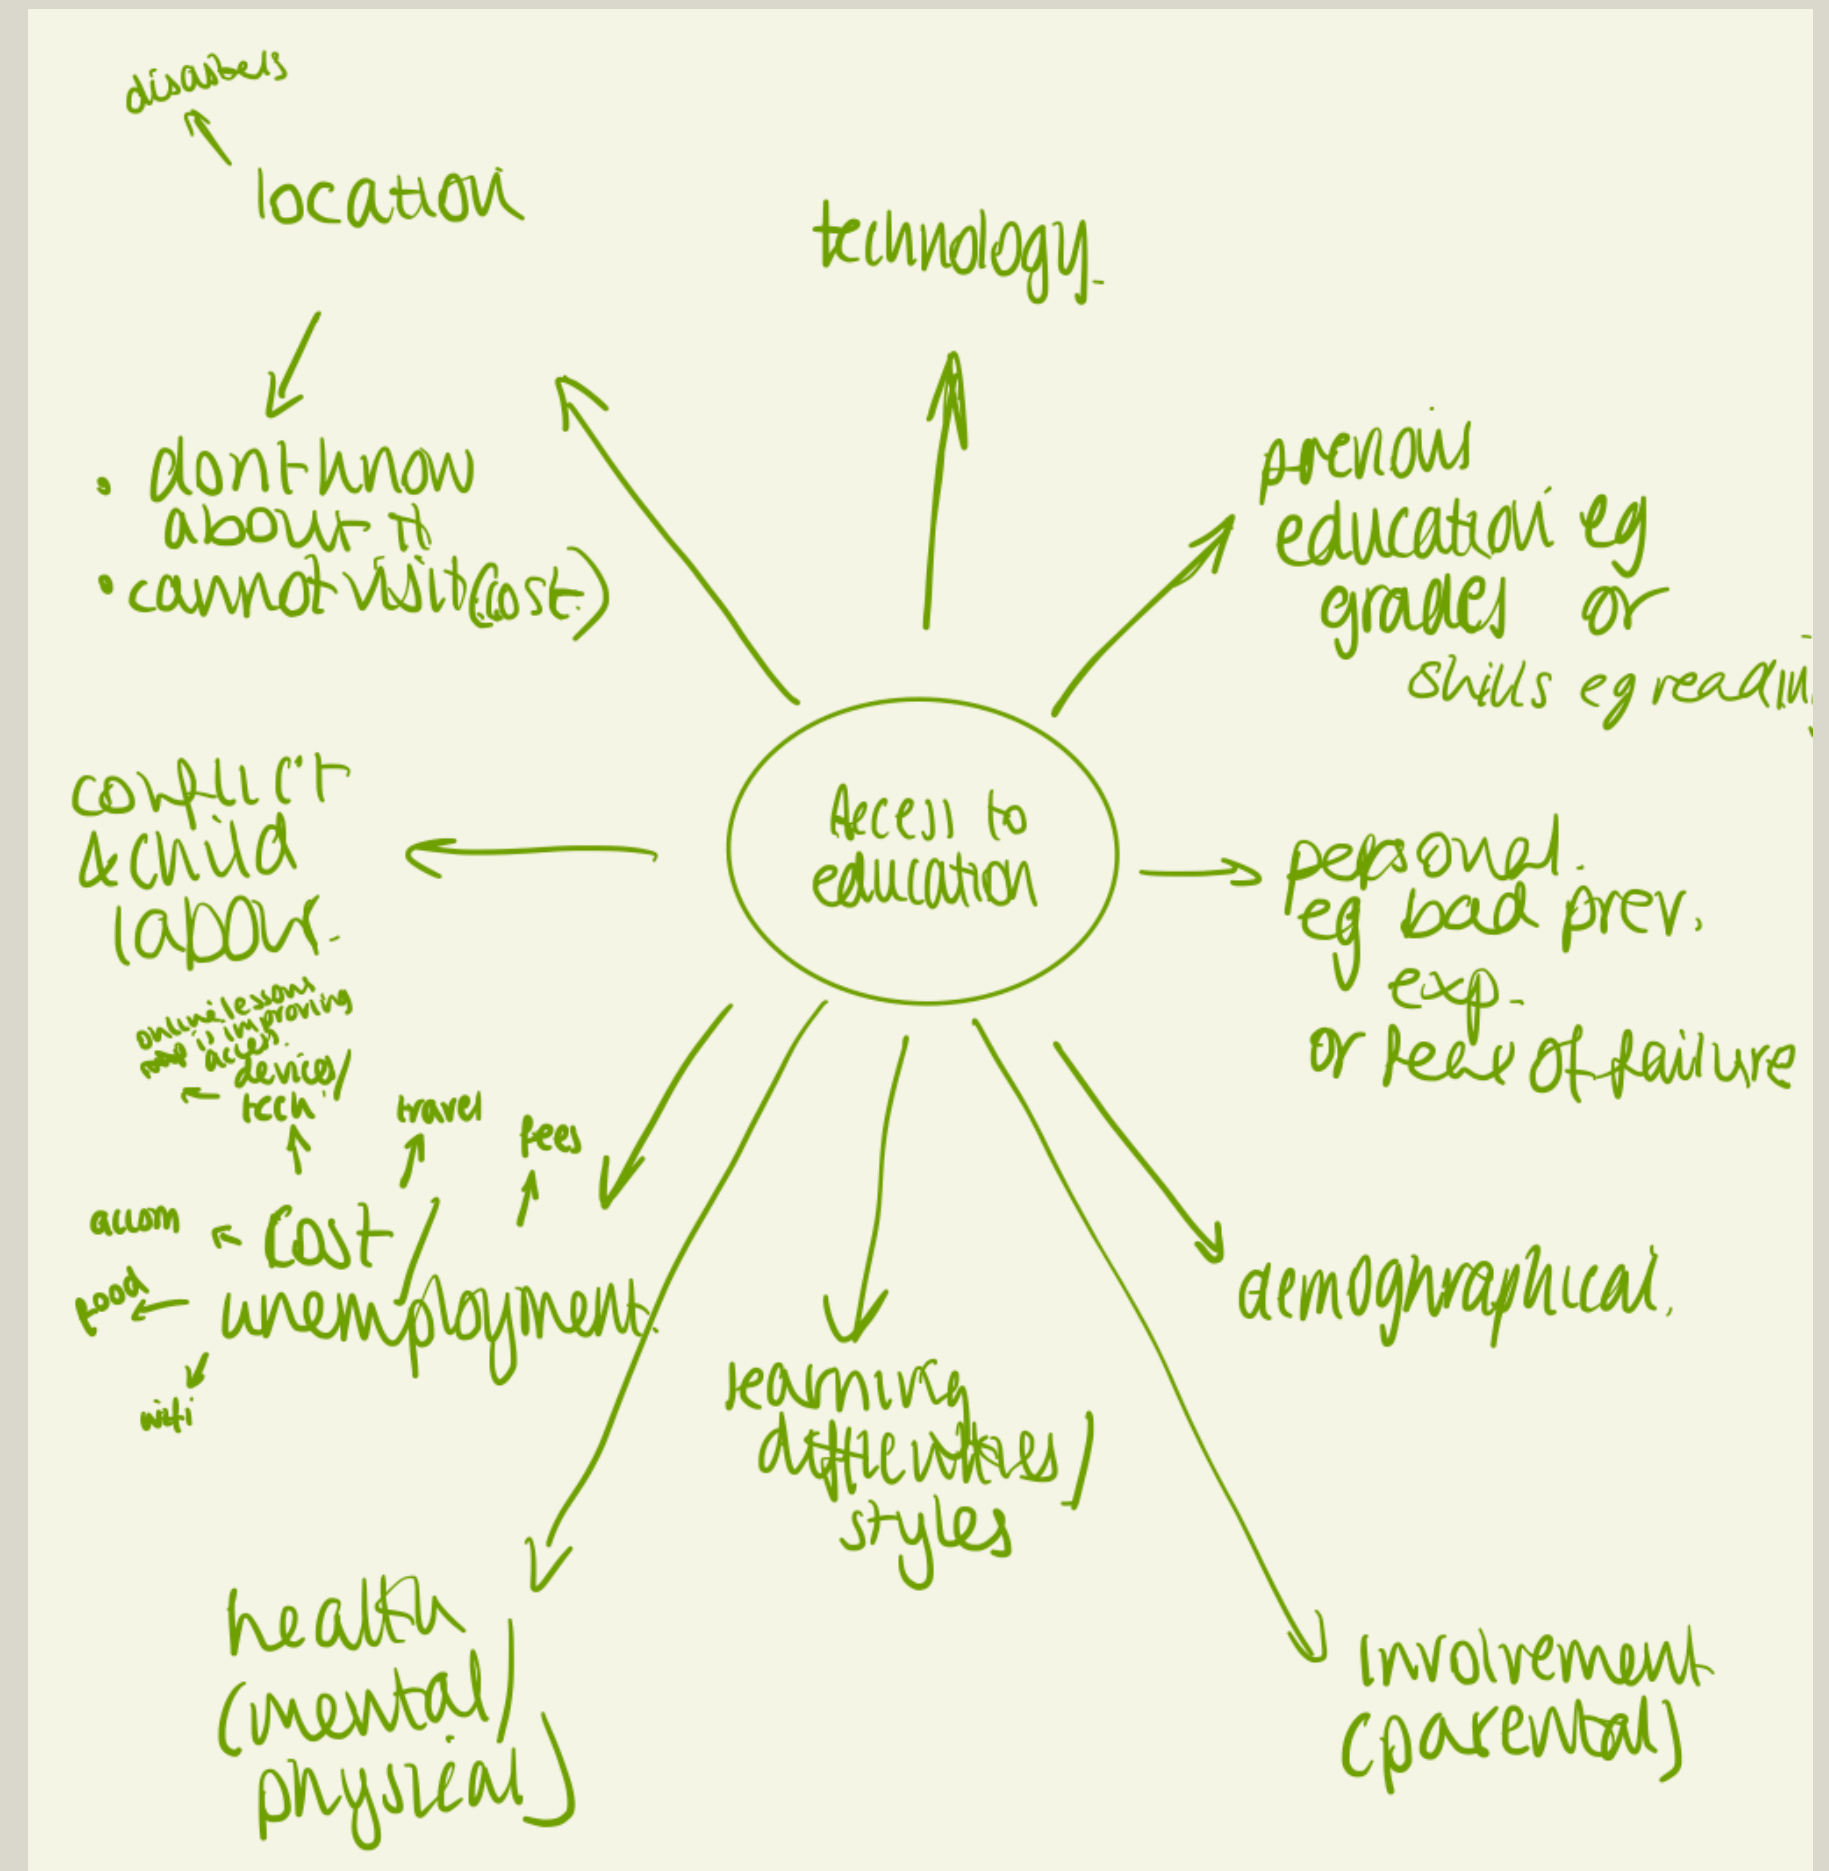 disasters
location
• dont know
about it
• cannot visit (cost.)
technology.
previous
education eg
grades or
skills eg reading
Access to
education
conflict
& child
labour.
personal.
eg bad prev.
exp.
or fear of failure
online lessons
is improving
access.
devices/
tech
travel
fees
accom
cost/
food
unemployment.
wifi
learning
difficulties/
styles
demoghraphical.
health
(mental/
physical)
involvement
(parental)